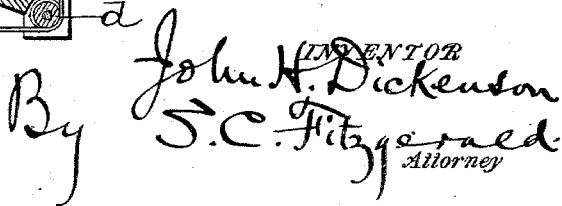 d
INVENTOR
John H. Dickenson
By S. C. Fitzgerald.
Attorney